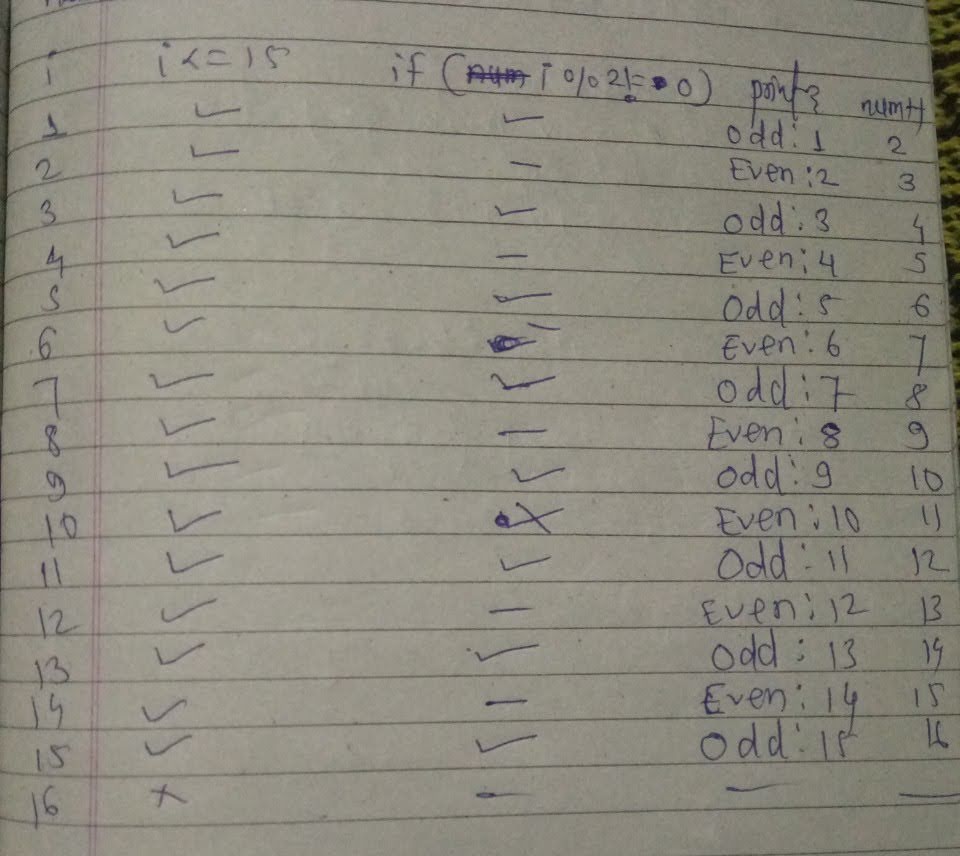 i i<=15 if (i%2!=0) printf num++
1 ✓ ✓ Odd: 1 2
2 ✓ — Even: 2 3
3 ✓ ✓ Odd: 3 4
4 ✓ — Even: 4 5
5 ✓ ✓ Odd: 5 6
6 ✓ — Even: 6 7
7 ✓ ✓ Odd: 7 8
8 ✓ — Even: 8 9
9 ✓ ✓ Odd: 9 10
10 ✓ ✗ Even: 10 11
11 ✓ ✓ Odd: 11 12
12 ✓ — Even: 12 13
13 ✓ ✓ Odd: 13 14
14 ✓ — Even: 14 15
15 ✓ ✓ Odd: 15 16
16 ✗ — — —